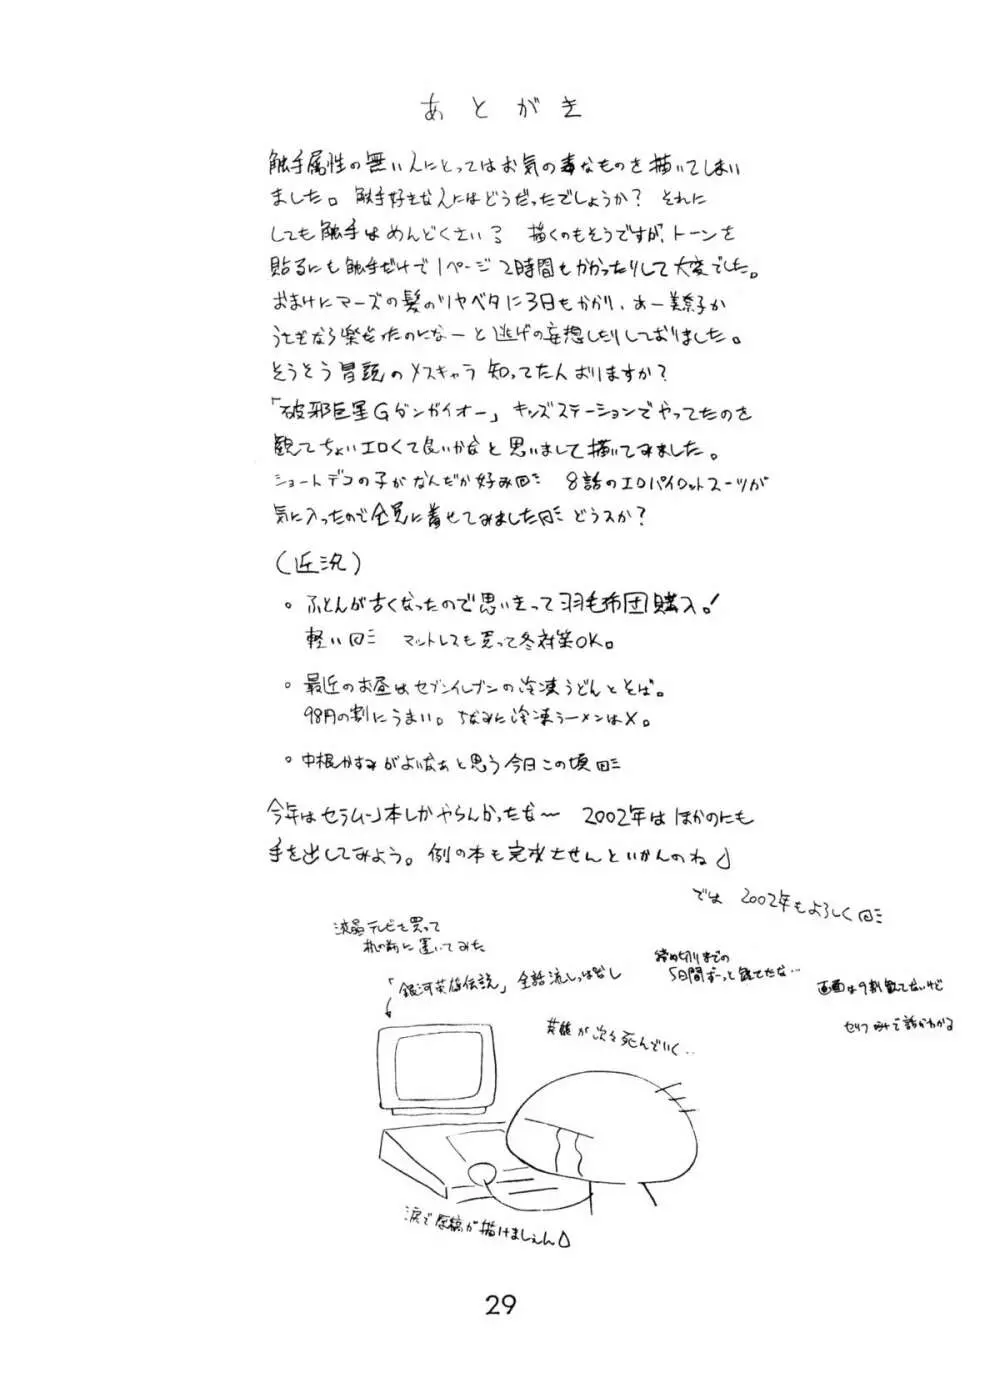 あとがき
触手属性の無い人にとってはお気の毒なものを描いてしまい
ました。触手好きな人にはどうだったでしょうか？ それに
しても触手はめんどくさい 描くのもそうですが、トーンを
貼るにも触手だけで1ページ2時間もかかったりして大変でした。
おまけにマーズの髪のツヤベタに3日もかかり、あー美奈子か
うさぎなら楽だったのになーと逃げの妄想したりしておりました。
そうそう冒頭のメスキャラ知ってた人おりますか？
「破邪巨星Gダンガイオー」キッズステーションでやってたのを
観てちょいエロくて良いかなと思いまして描いてみました。
ショートデコの子がなんだか好み 8話のエロパイロットスーツが
気に入ったので全員に着せてみました どうスか？
（近況）
○ ふとんが古くなったので思いきって羽毛布団購入！
軽い マットレスも買って冬対策OK。
○ 最近のお昼はセブンイレブンの冷凍うどんとそば。
98円の割にうまい。ちなみに冷凍ラーメンは×。
○ 中根かすみがよいなぁと思う今日この頃
今年はセラムーン本しかやらんかったな〜 2002年はほかのにも
手を出してみよう。例の本も完成させんといかんのね
では 2002年もよろしく
液晶テレビを買って
机の前に置いてみた
「銀河英雄伝説」全話流しっぱなし
締め切りまでの
5日間ずーっと観てたな…
画面は9割観てないけど
セリフだけで話がわかる
英雄が次々死んでいく…
涙で原稿が描けましぇん
29